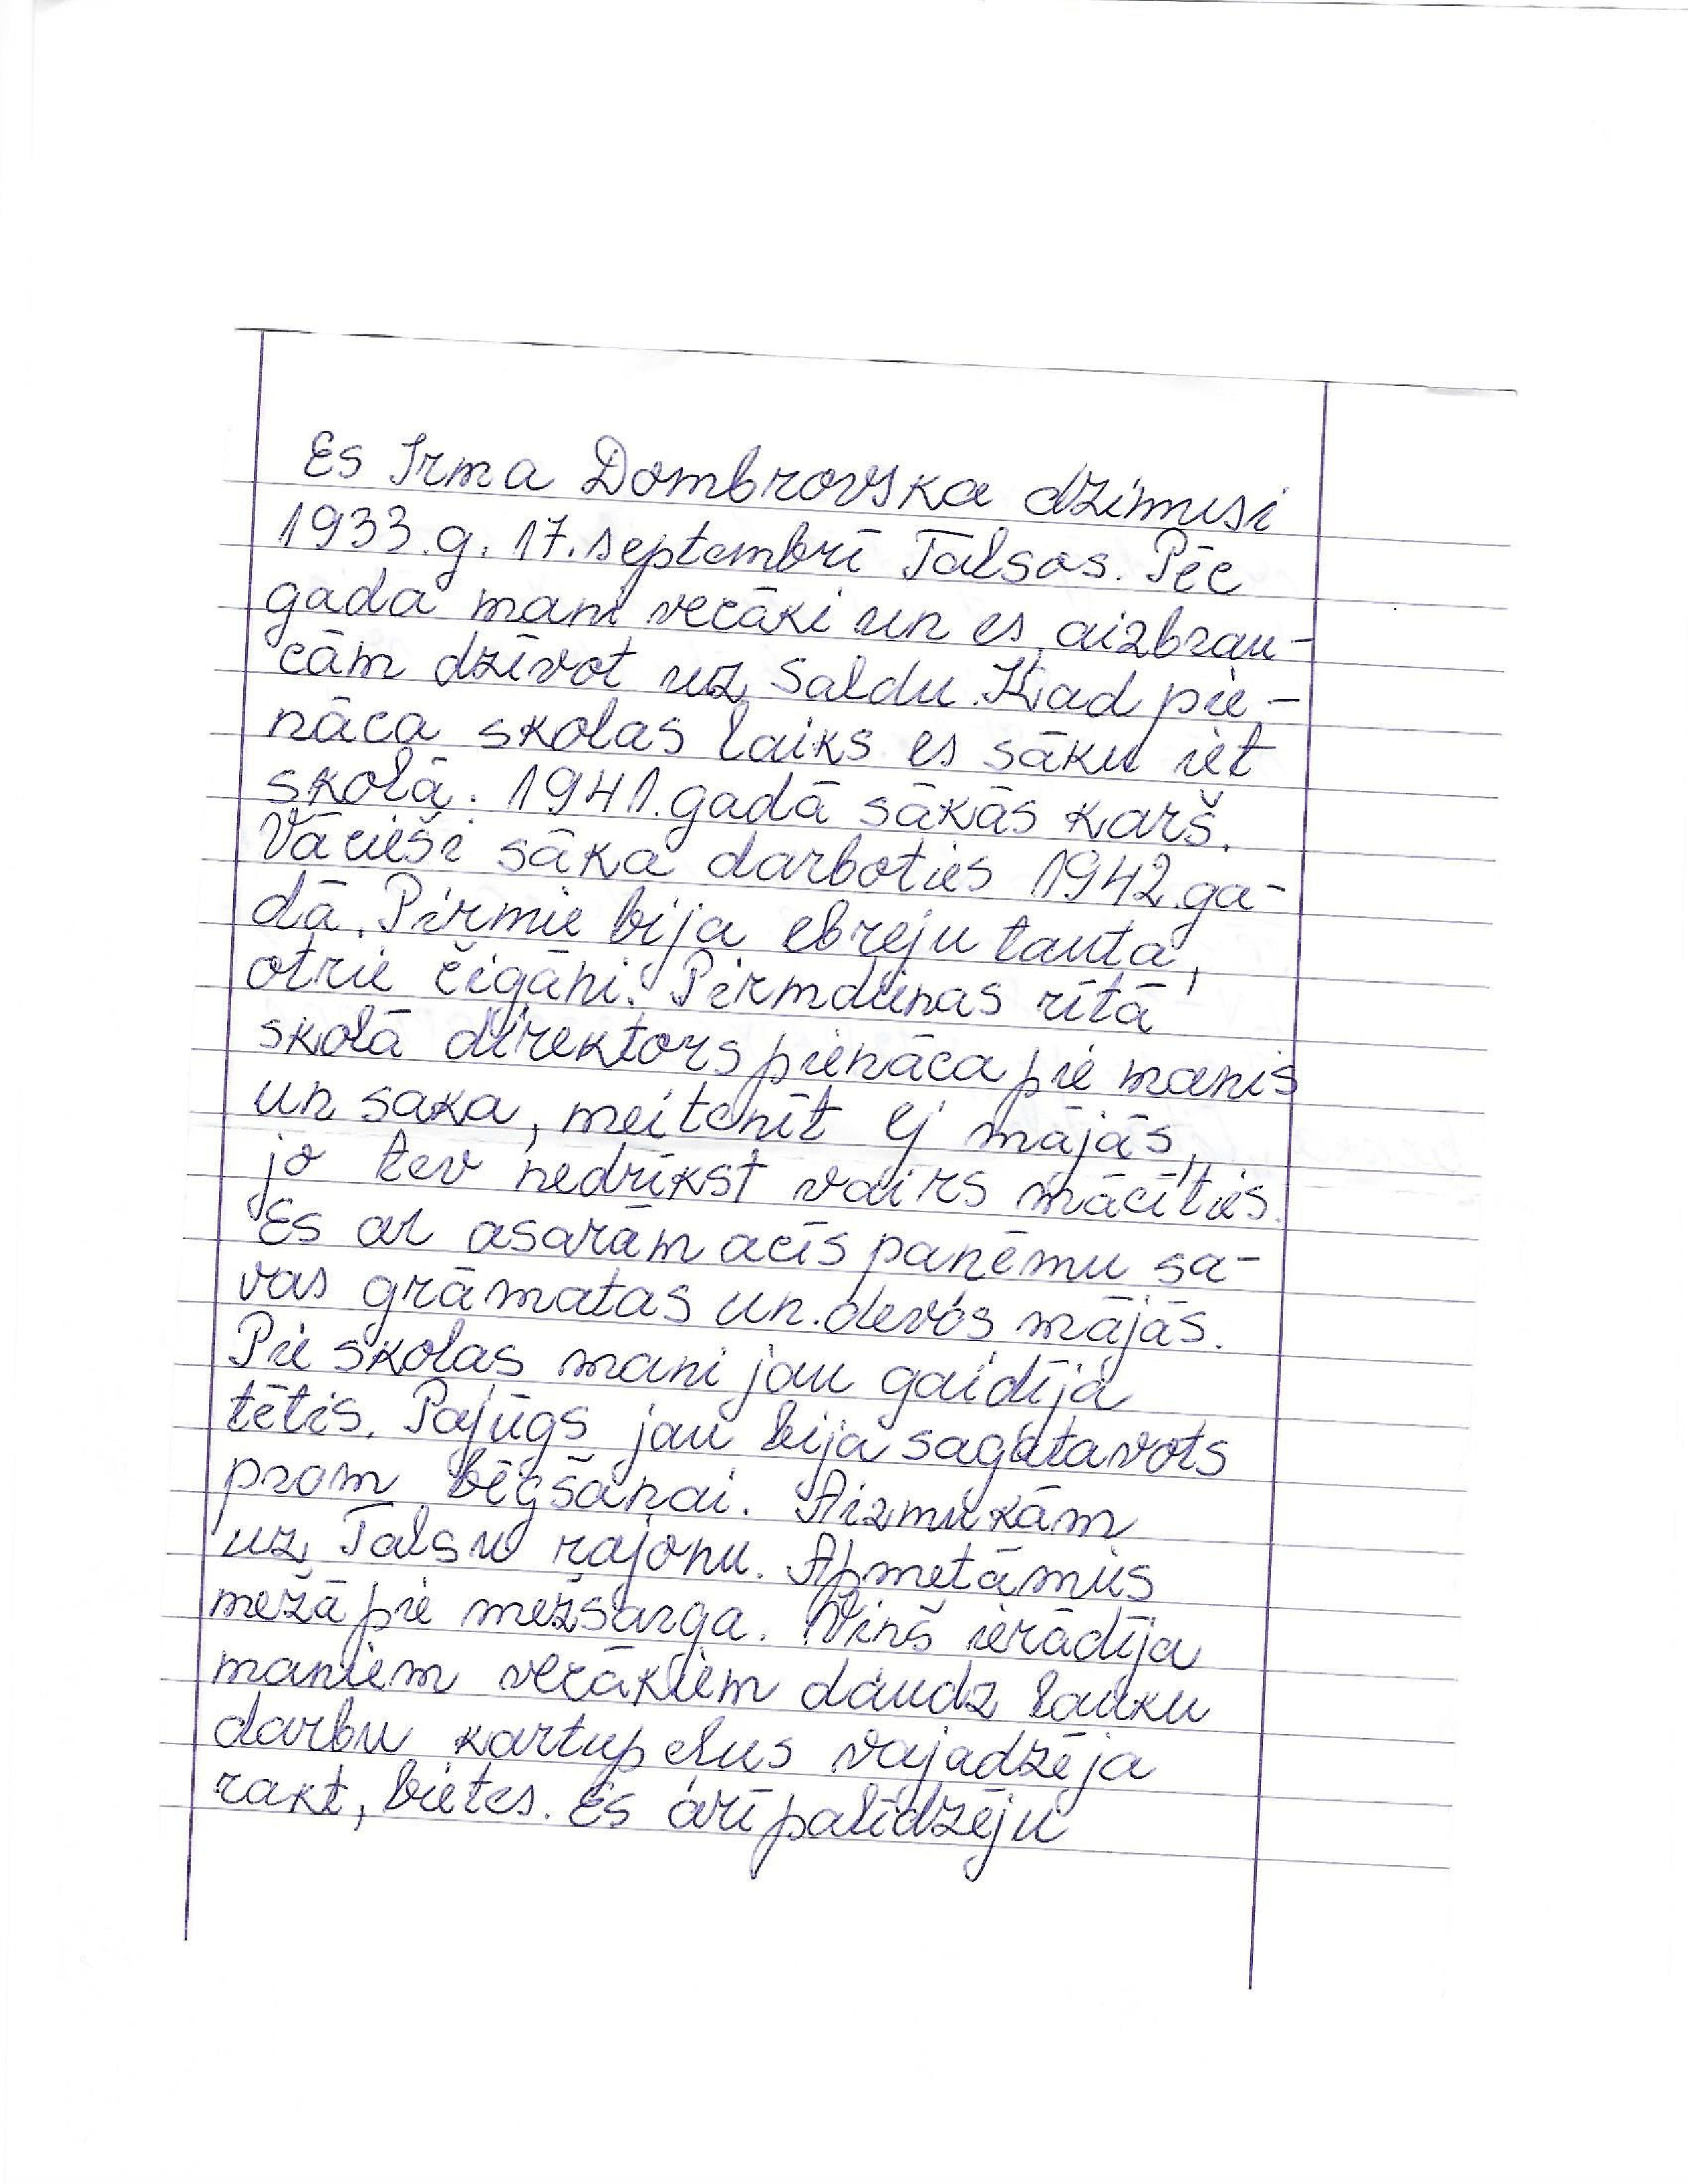 Es Irma Dombrovska dzimusi
1933.g. 17. septembrī Talsos. Pēc
gada mani vecāki un es aizbrau-
cām dzīvot uz Saldu. Kad pie-
nāca skolas laiks es sāku iet
skolā. 1941.gadā sākās karš.
Vācieši sāka darboties 1942.ga-
dā. Pirmie bija ebreju tauta,
otrie čigāni. Pirmdienas rītā
skolā direktors pienāca pie manis
un saka, meitenīt ej mājās,
jo tev nedrīkst vairs mācīties.
Es ar asarām acīs paņēmu sa-
vas grāmatas un devos mājās.
Pie skolas mani jau gaidīja
tētis. Pajūgs jau bija sagatavots
prom bēgšanai. Aizmukām
uz Talsu rajonu. Apmetāmies
mežā pie mežsarga. Viņš ierādīja
maniem vecākiem daudz lauku
darbu kartupeļus vajadzēja
rakt, bietes. Es arī palīdzēju